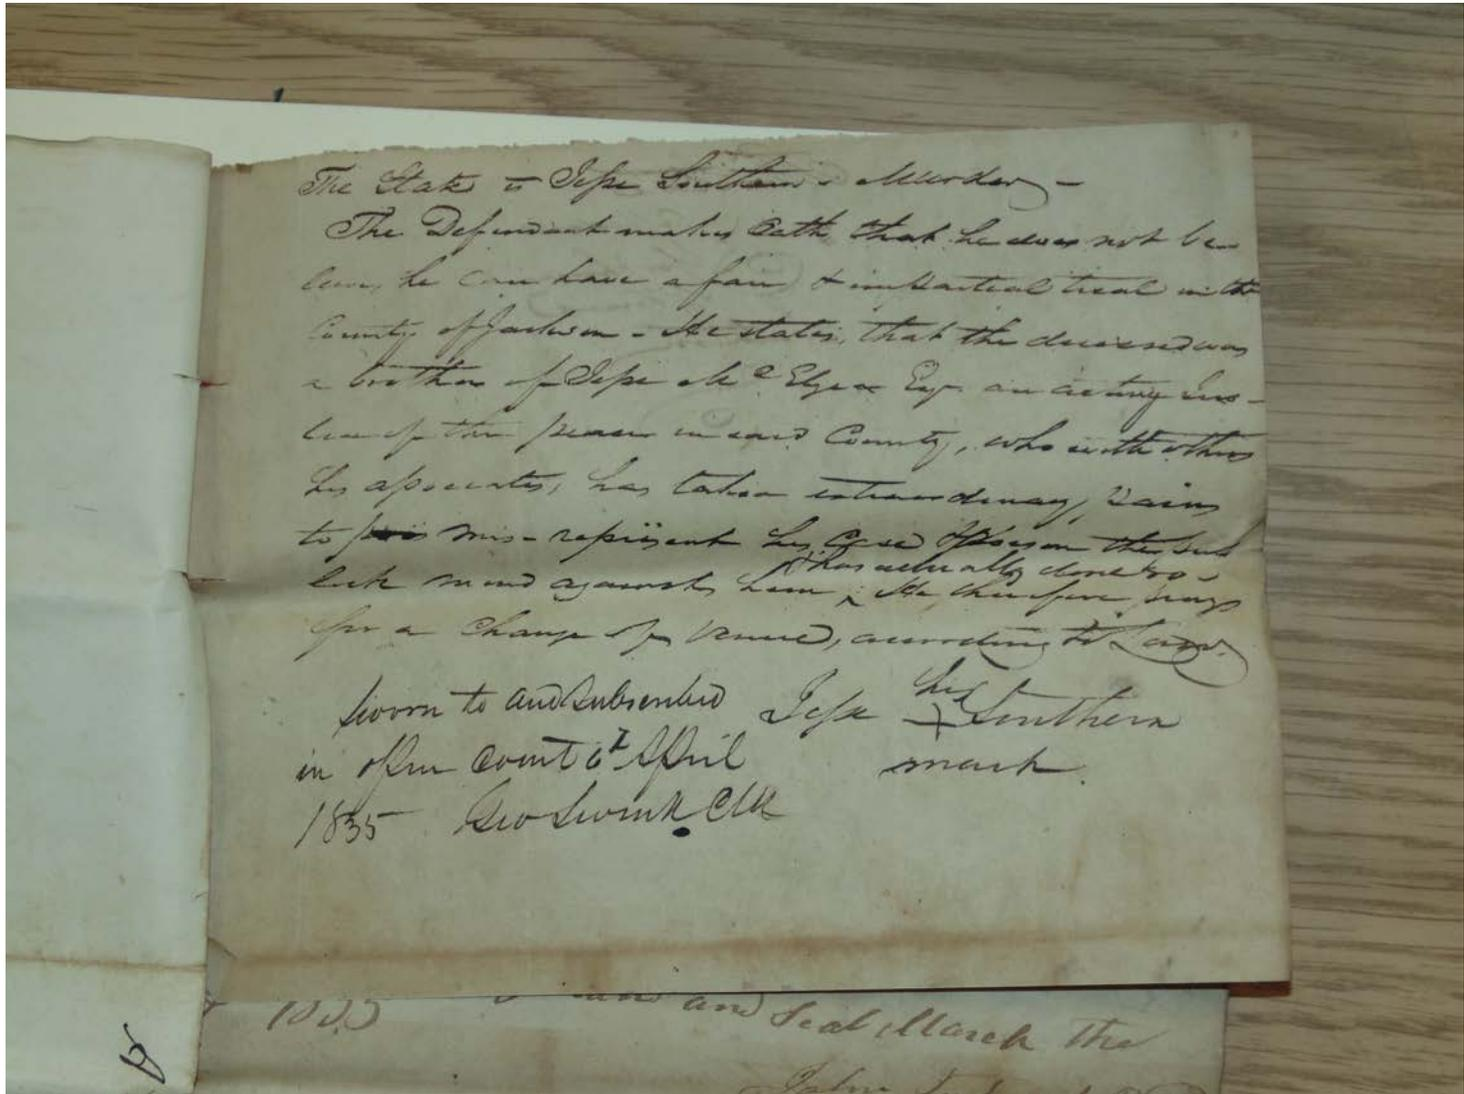 The State vs Jesse Southern - Murder -
The Defendant makes Oath that he does not be-
lieve he can have a fair & impartial trial in the
County of Jackson - He states, that the deceased was
a brother of Jesse McElyea Esqr. an acting Jus-
tice of the peace in said County, who with others
his associates, has taken extraordinary pains
to mis-represent his case & the pub
lick mind against him, & has actually done so - He therefore prays
for a change of Venue, according to Law.
Sworn to and subscribed
in open court 6th April
1835 Geo Swink Clk
Jesse his + Southern
mark
1835 and Seal March the
John